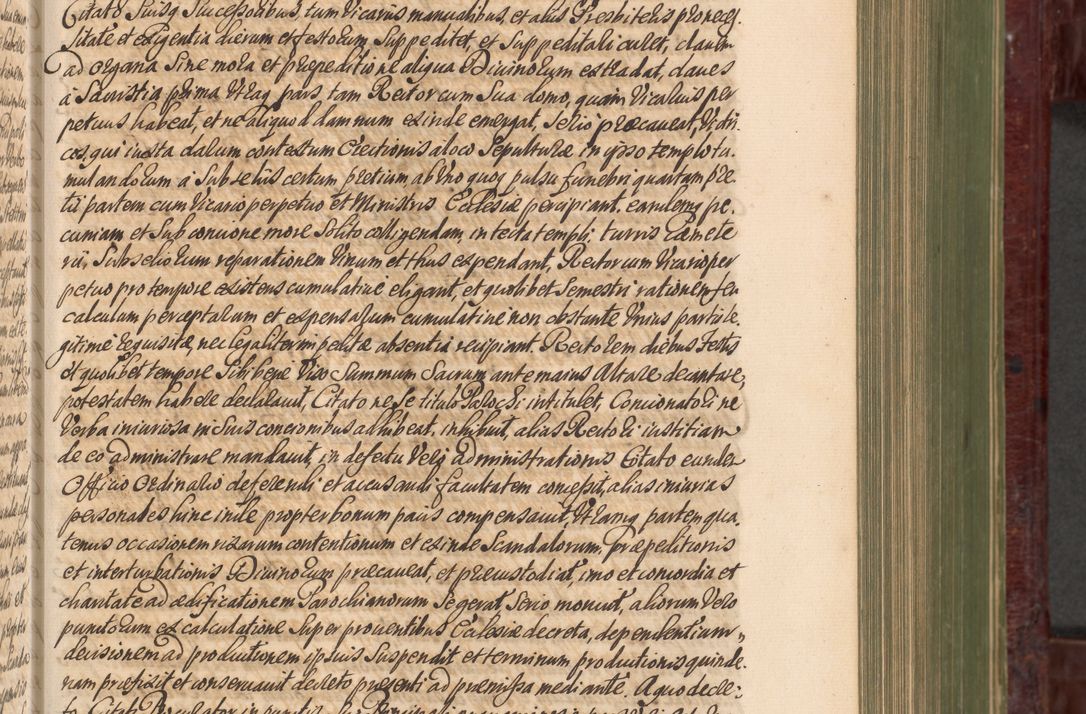 Citato Suisq Successoribus, tum Vicariis manualibus, et aliis Presbiteris pro neces
sitate et exigentia dierum et festorum, Suppeditet, et Suppeditari curet, clavem
ad organa sine mora et præpeditione aliqua Divinorum extradat, claves
à Sacristia prima Utraq pars tam Rector cum Sua domo, quam Vicarius per
petuus habeat, et ne aliquod damnum exinde emergat, serio præcaveat, Vitri
cos, qui iuxta dictum contextum Erectionis a loco Sepulturæ in ipso templo tu
mulandorum à Subseliis certum pretium, ab Uno quoq pulsu funebri quartam pre
tii partem cum Vicario perpetuo et Ministris Ecclesiæ percipiant, eandemq pe
cuniam et Sub convone more Solito colligendam, in tecta templi, turris Cæmete
rii, Subseliorum reparationem Vinum et thus expendant, Rector cum Vicario per
petuo pro tempore existens cumulative eligant, et quolibet Semestri rationem seu
calculum perceptarum et expensarum cumulative non obstante Unius partis le
gitime requisitæ, nec legaliter impeditæ absentia recipiant. Rectorem diebus Festis
et quolibet tempore Sibi bene Viso Summum Sacrum ante maius Altare decantare,
potestatem habere declaravit, Citato ne Se titulo Parochi intitulet, Concionatori ne
Verba iniuriosa in Suis concionibus adhibeat, inhibuit, alias Rectori iustitiam
de eo administrare mandavit, in defectu Vero administrationis Citato eundem
Officio Ordinario deferendi et accusandi facultatem concessit, alias iniurias
personales hinc inde propter bonum pacis compensavit, Utramq partem qua
tenus occasionem rixarum contentionum et exinde Scandalorum, præpeditionis
et interturbationis Divinorum præcaveat, et præcustodiat, imo et concordia et
charitate ad ædificationem Parochianorum Se gerat, Serio monuit, aliorum Vero
punctorum ex calculatione Super proventibus Ecclesiæ decreta, dependentium
decisionem ad productionem ipsius Suspendit et terminum productionis quinde
nam præfixit et conservavit decreto præsenti ad præmissa mediante. A quo decre
to Citati Procurator in punctis